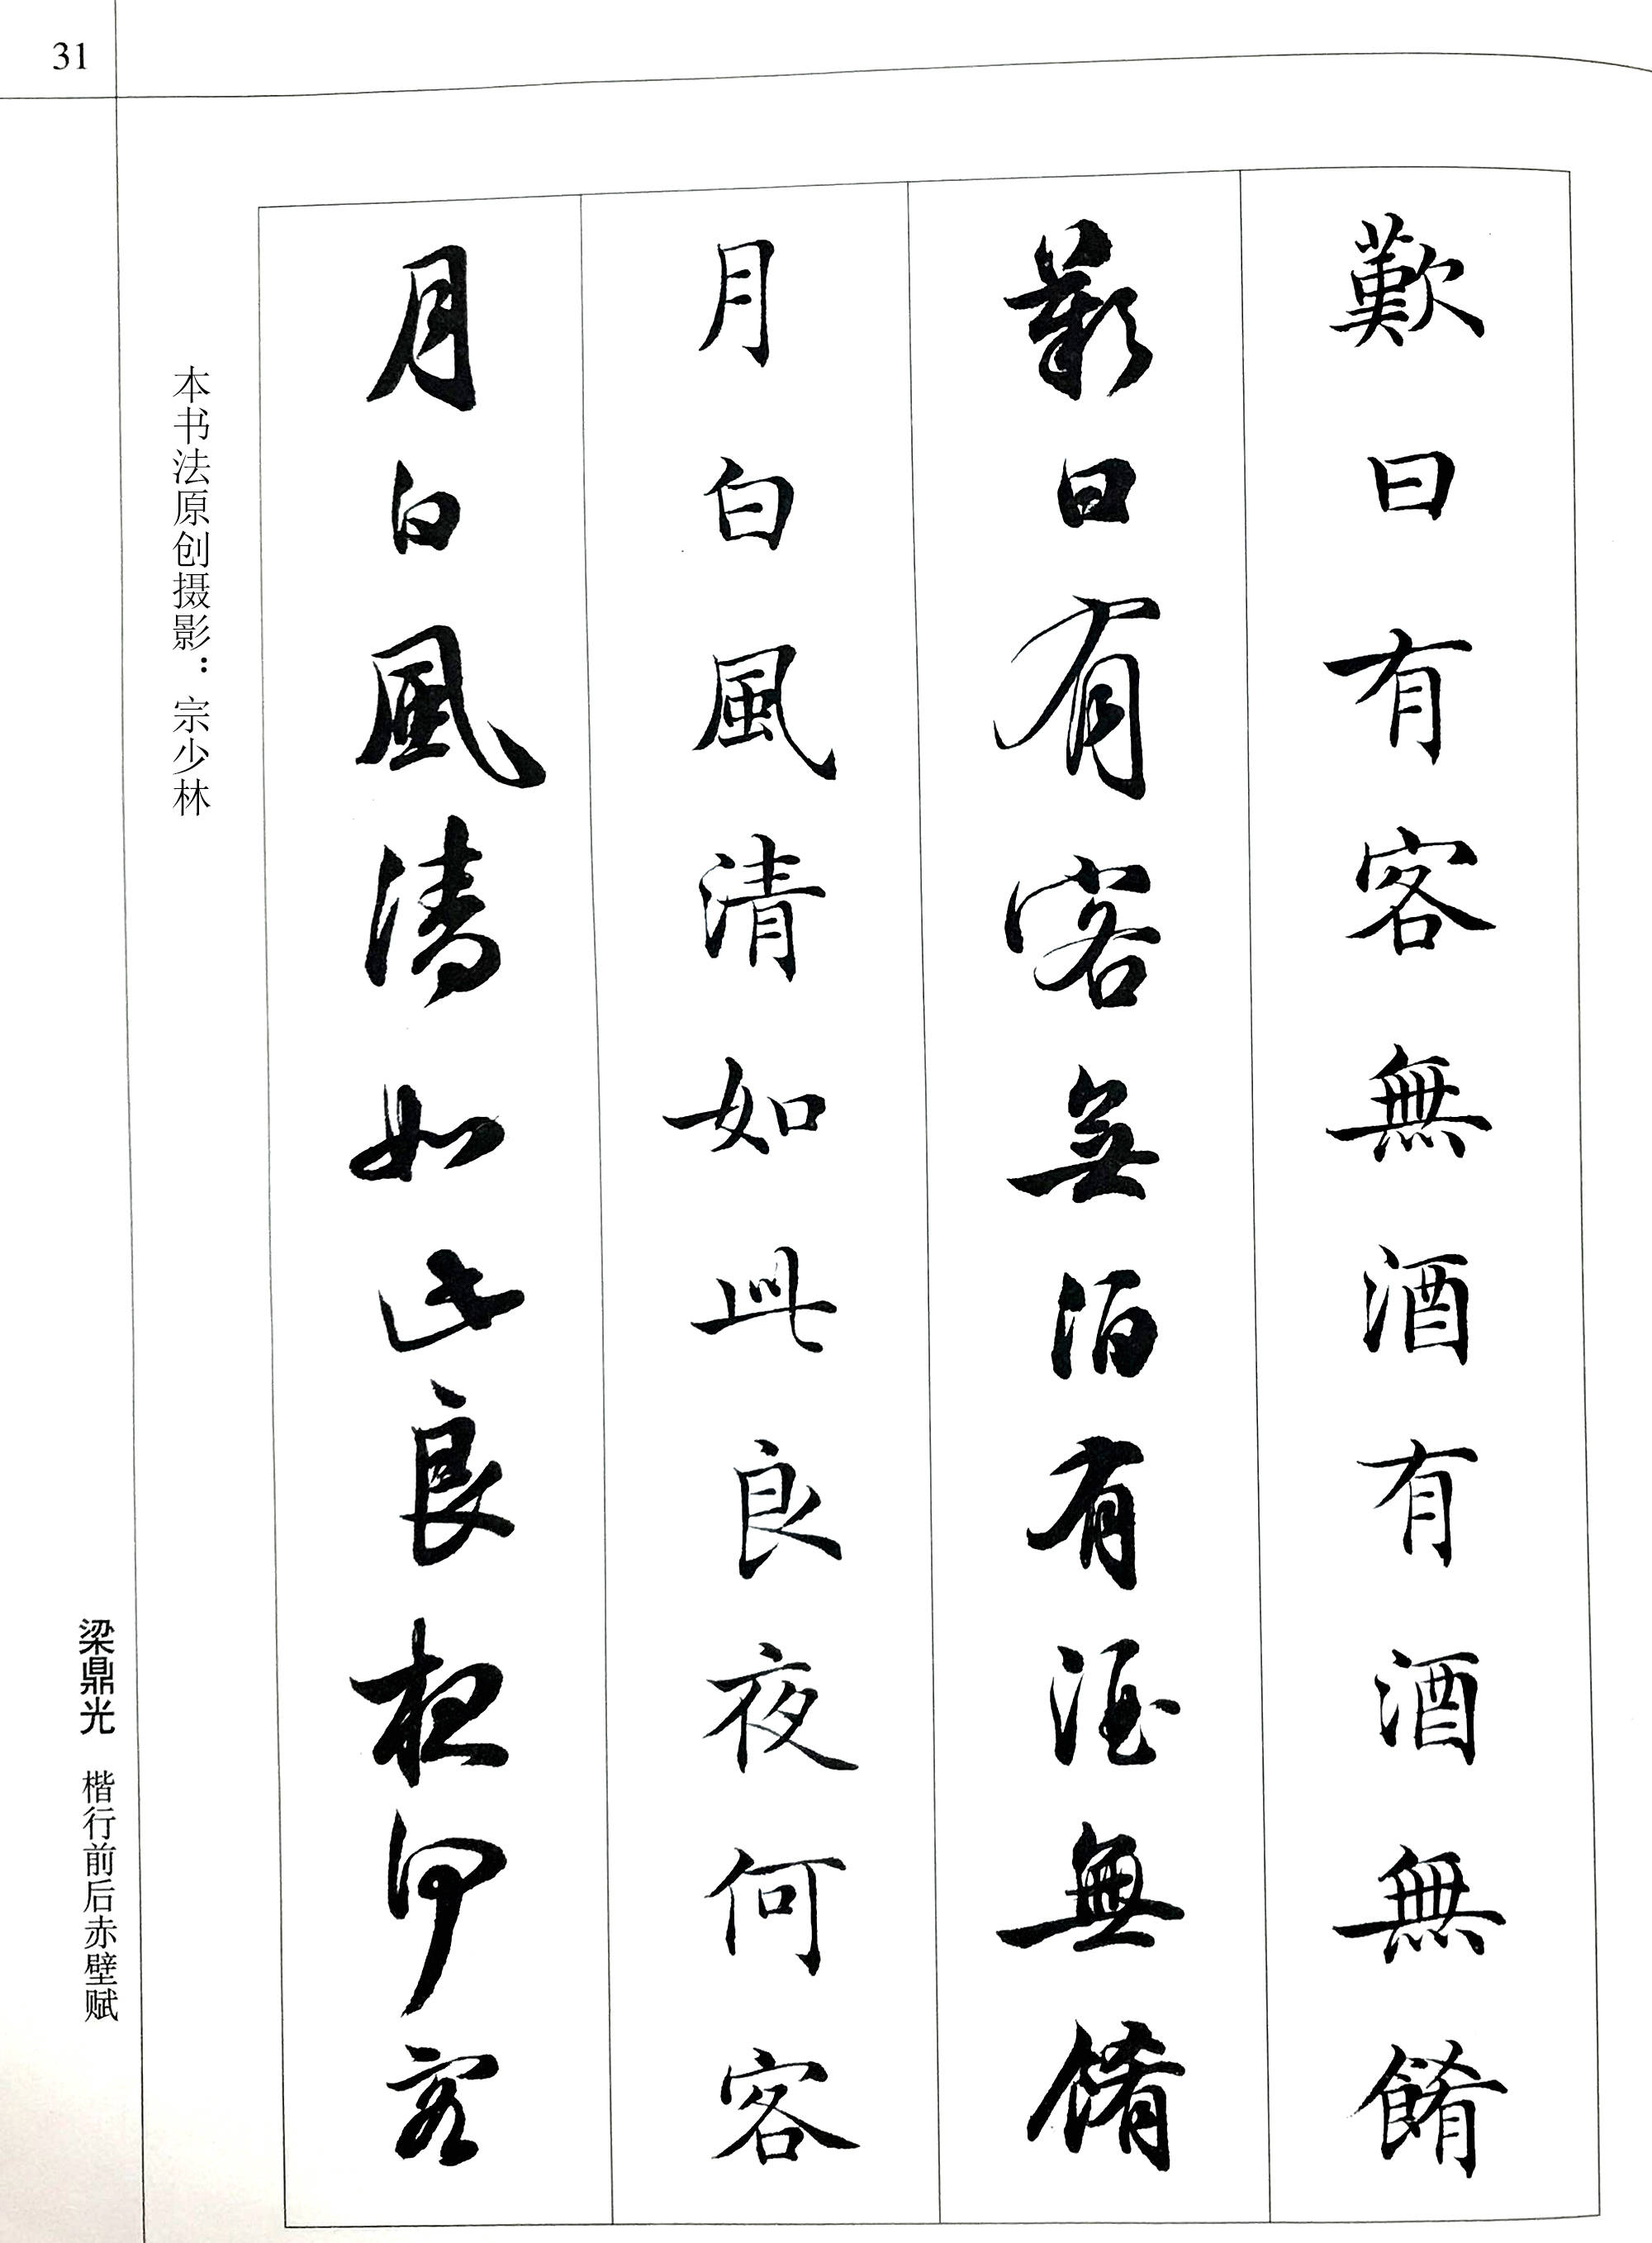 31
歎曰有客無酒有酒無餚
歎曰有客無酒有酒無餚
月白風清如此良夜何客
月白風清如此良夜何客
本书法原创摄影：宗少林
梁鼎光 楷行前后赤壁赋